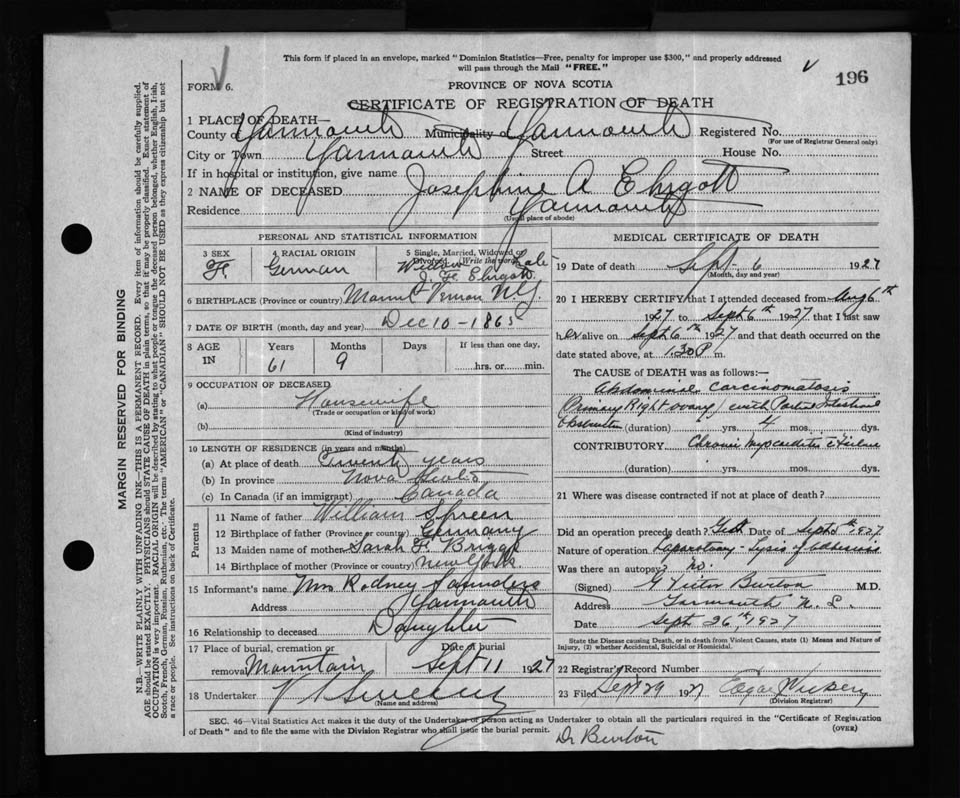 This form if placed in an envelope, marked "Dominion Statistics—Free, penalty for improper use $300," and properly addressed
will pass through the Mail "FREE."
196
FORM 6.
PROVINCE OF NOVA SCOTIA
CERTIFICATE OF REGISTRATION OF DEATH
1 PLACE OF DEATH—
County of Yarmouth Municipality of Yarmouth Registered No.
(For use of Registrar General only)
City or Town Yarmouth Street House No.
If in hospital or institution, give name
2 NAME OF DECEASED Josephine A Ehrgott
Residence Yarmouth
(Usual place of abode)
PERSONAL AND STATISTICAL INFORMATION
3 SEX F. 4 RACIAL ORIGIN German 5 Single, Married, Widowed or Divorced (Write the word) Widow
Ehrgott
6 BIRTHPLACE (Province or country) Mount Vernon N.Y.
7 DATE OF BIRTH (month, day and year) Dec 10 - 1865
8 AGE IN Years 61 Months 9 Days If less than one day, hrs. or min.
9 OCCUPATION OF DECEASED
(a) Housewife
(Trade or occupation or kind of work)
(b)
(Kind of industry)
10 LENGTH OF RESIDENCE (in years and months)
(a) At place of death Twenty years
(b) In province Nova Scotia
(c) In Canada (if an immigrant) Canada
Parents
11 Name of father William Spreen
12 Birthplace of father (Province or country) Germany
13 Maiden name of mother Sarah F. Briggs
14 Birthplace of mother (Province or country) New York
15 Informant's name Mrs Rodney Saunders
Address Yarmouth
16 Relationship to deceased Daughter
17 Place of burial, cremation or removal Mountain Date of burial Sept 11 1927
18 Undertaker V S Sweeny
(Name and address)
MEDICAL CERTIFICATE OF DEATH
19 Date of death Sept. 6 1927
(Month, day and year)
20 I HEREBY CERTIFY that I attended deceased from Aug 6th
1927 to Sept 6th 1927 that I last saw
her alive on Sept 6th 1927 and that death occurred on the
date stated above, at 1.30 P m.
The CAUSE of DEATH was as follows:—
Abdominal carcinomatosis
(Primary Right ovary) with Partial Intestinal
Obstruction (duration) yrs. 4 mos. dys.
CONTRIBUTORY Chronic myocarditis
(duration) yrs. mos. dys.
21 Where was disease contracted if not at place of death?
Did an operation precede death? Yes Date of Sept 5th 1927
Nature of operation Laparotomy - Lysis of adhesions
Was there an autopsy? no.
(Signed) G Victor Burton M.D.
Address Yarmouth N.S.
Date Sept 26th 1927
State the Disease causing Death, or in death from Violent Causes, state (1) Means and Nature of
Injury, (2) whether Accidental, Suicidal or Homicidal.
22 Registrar's Record Number
23 Filed Sept 29 1927 Edgar Vickery
(Division Registrar)
SEC. 46—Vital Statistics Act makes it the duty of the Undertaker or person acting as Undertaker to obtain all the particulars required in the "Certificate of Registration
of Death" and to file the same with the Division Registrar who shall issue the burial permit.
(OVER)
Dr Burton
MARGIN RESERVED FOR BINDING
N.B.—WRITE PLAINLY WITH UNFADING INK—THIS IS A PERMANENT RECORD. Every item of information should be carefully supplied.
AGE should be stated EXACTLY. PHYSICIANS should STATE CAUSE OF DEATH in plain terms, so that it may be properly classified. Exact statement of
OCCUPATION is very important. RACIAL ORIGIN will be described by stating to what people or tongue the deceased person belonged, whether English, Irish,
Scotch, French, German, Russian, Ruthenian, etc. The terms "AMERICAN" or "CANADIAN" SHOULD NOT BE USED as they express citizenship but not
a race or people. See instructions on back of Certificate.